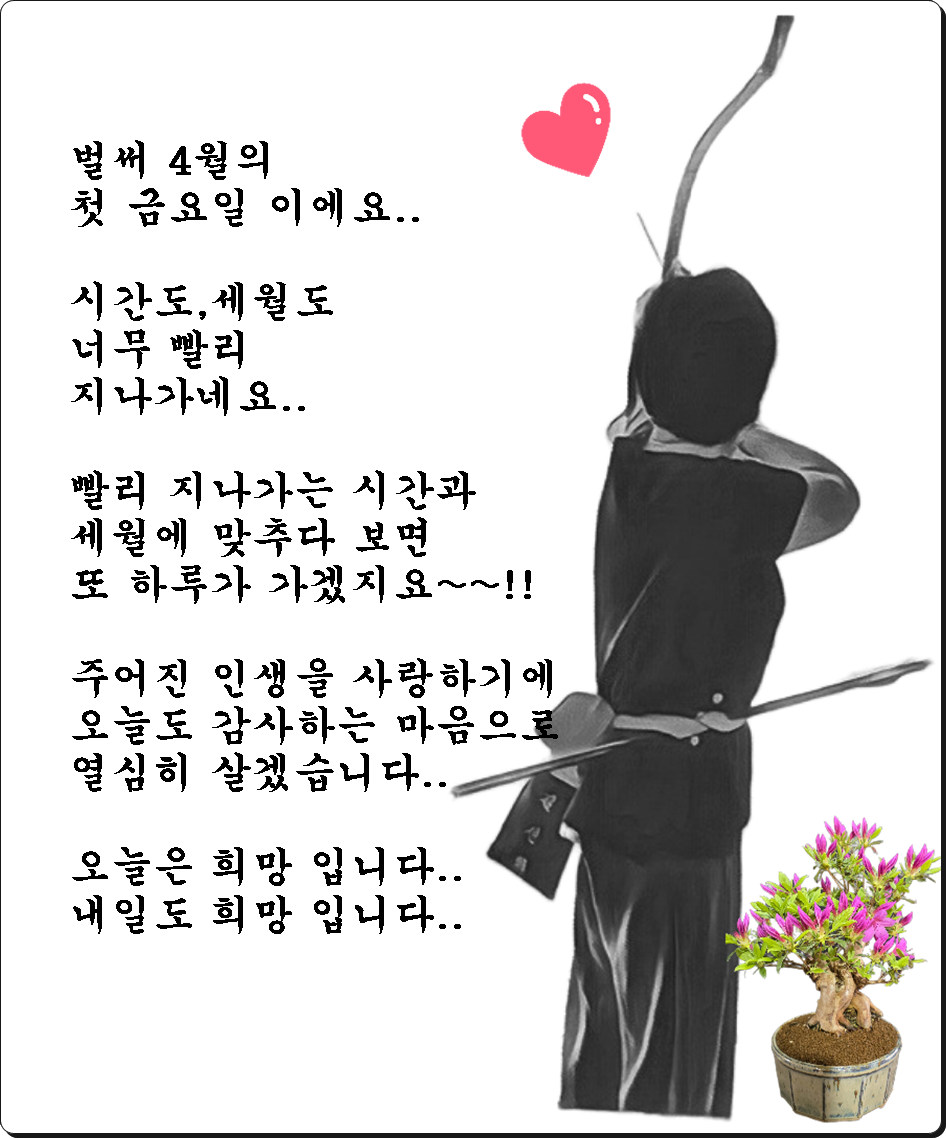 벌써 4월의
첫 금요일 이에요..
시간도,세월도
너무 빨리
지나가네요..
빨리 지나가는 시간과
세월에 맞추다 보면
또 하루가 가겠지요~~!!
주어진 인생을 사랑하기에
오늘도 감사하는 마음으로
열심히 살겠습니다..
오늘은 희망 입니다..
내일도 희망 입니다..